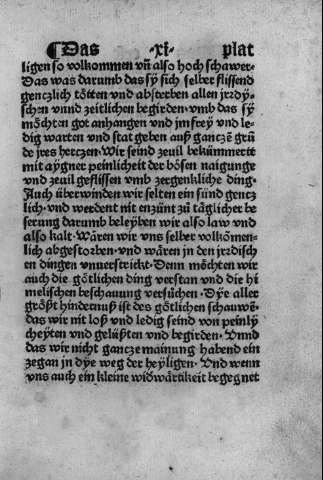 ¶ Das ·xi· plat
ligen so volkommen vñ also hoch schawer·
Das was darumb das sÿ sich selber flissend
genczlich tötten und absterben allen jrzdÿ-
schen vnnd zeitlichen begirden·vmb das sÿ
möchten got anhangen vnd jmfreÿ vnd le-
dig warten vnd stat geben auß ganczē grū
de jres herczen·Wir seind zeuil bekümmertt
mit aÿgner peinlicheit der bösen naigunge
vnd zeuil geflissen vmb zergenkliche ding·
Auch überwinden wir selten ein sünd gencz
lich·vnd werdent nit enzünt zů täglicher be
serung darumb beleÿben wir also law vnd
also kalt·Wären wir vns selber volkōmen-
lich abgestorben·vnd wären jn den jrdisch
en dingen vnuerstrickt·Denn möchten wir
auch die götlichen ding verstan vnd die hi
melischen beschauung versůchen·Dÿe aller
gröst hindernuß ist des götlichen schauwē·
das wir nit loß vnd ledig seind von peinlÿ
cheÿten vnd gelüsten vnd begirden·Vnnd
das wir nicht gancze mainung habend ein
zegan jn dÿe weg der heÿligen·Vnd wenn
vns auch ein kleine widwärtikeit begegnet